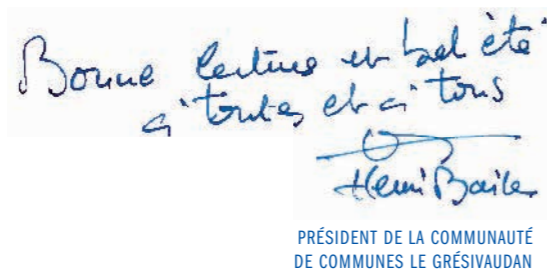 Bonne lecture et bel été
à toutes et à tous
Henri Baile
PRÉSIDENT DE LA COMMUNAUTÉ
DE COMMUNES LE GRÉSIVAUDAN